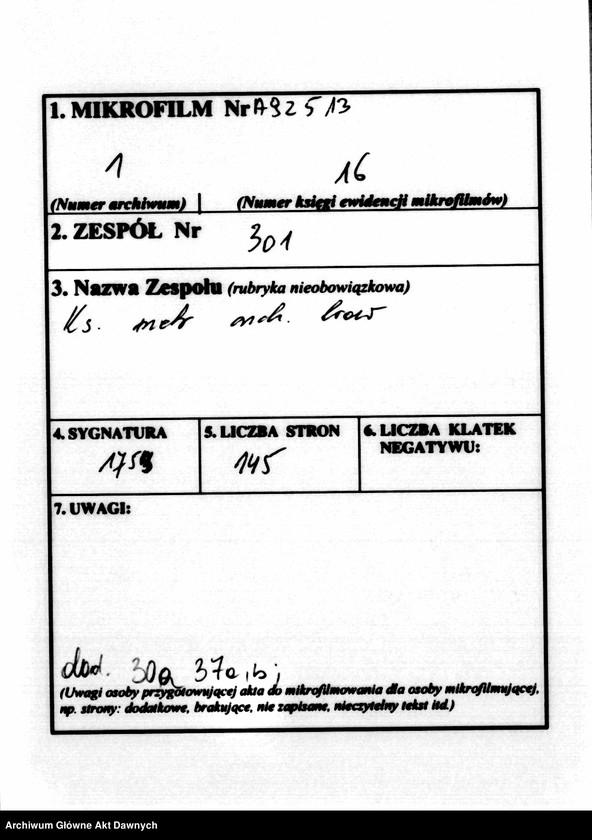 1. MIKROFILM Nr A92513
1 16
(Numer archiwum) (Numer księgi ewidencji mikrofilmów)
2. ZESPÓŁ Nr 301
3. Nazwa Zespołu (rubryka nieobowiązkowa)
Ks. metr arch. lwow
4. SYGNATURA 5. LICZBA STRON 6. LICZBA KLATEK
NEGATYWU:
145
7. UWAGI:
dod. 30a 37a,b;
(Uwagi osoby przygotowującej akta do mikrofilmowania dla osoby mikrofilmującej,
np. strony: dodatkowe, brakujące, nie zapisane, nieczytelny tekst itd.)
Archiwum Główne Akt Dawnych